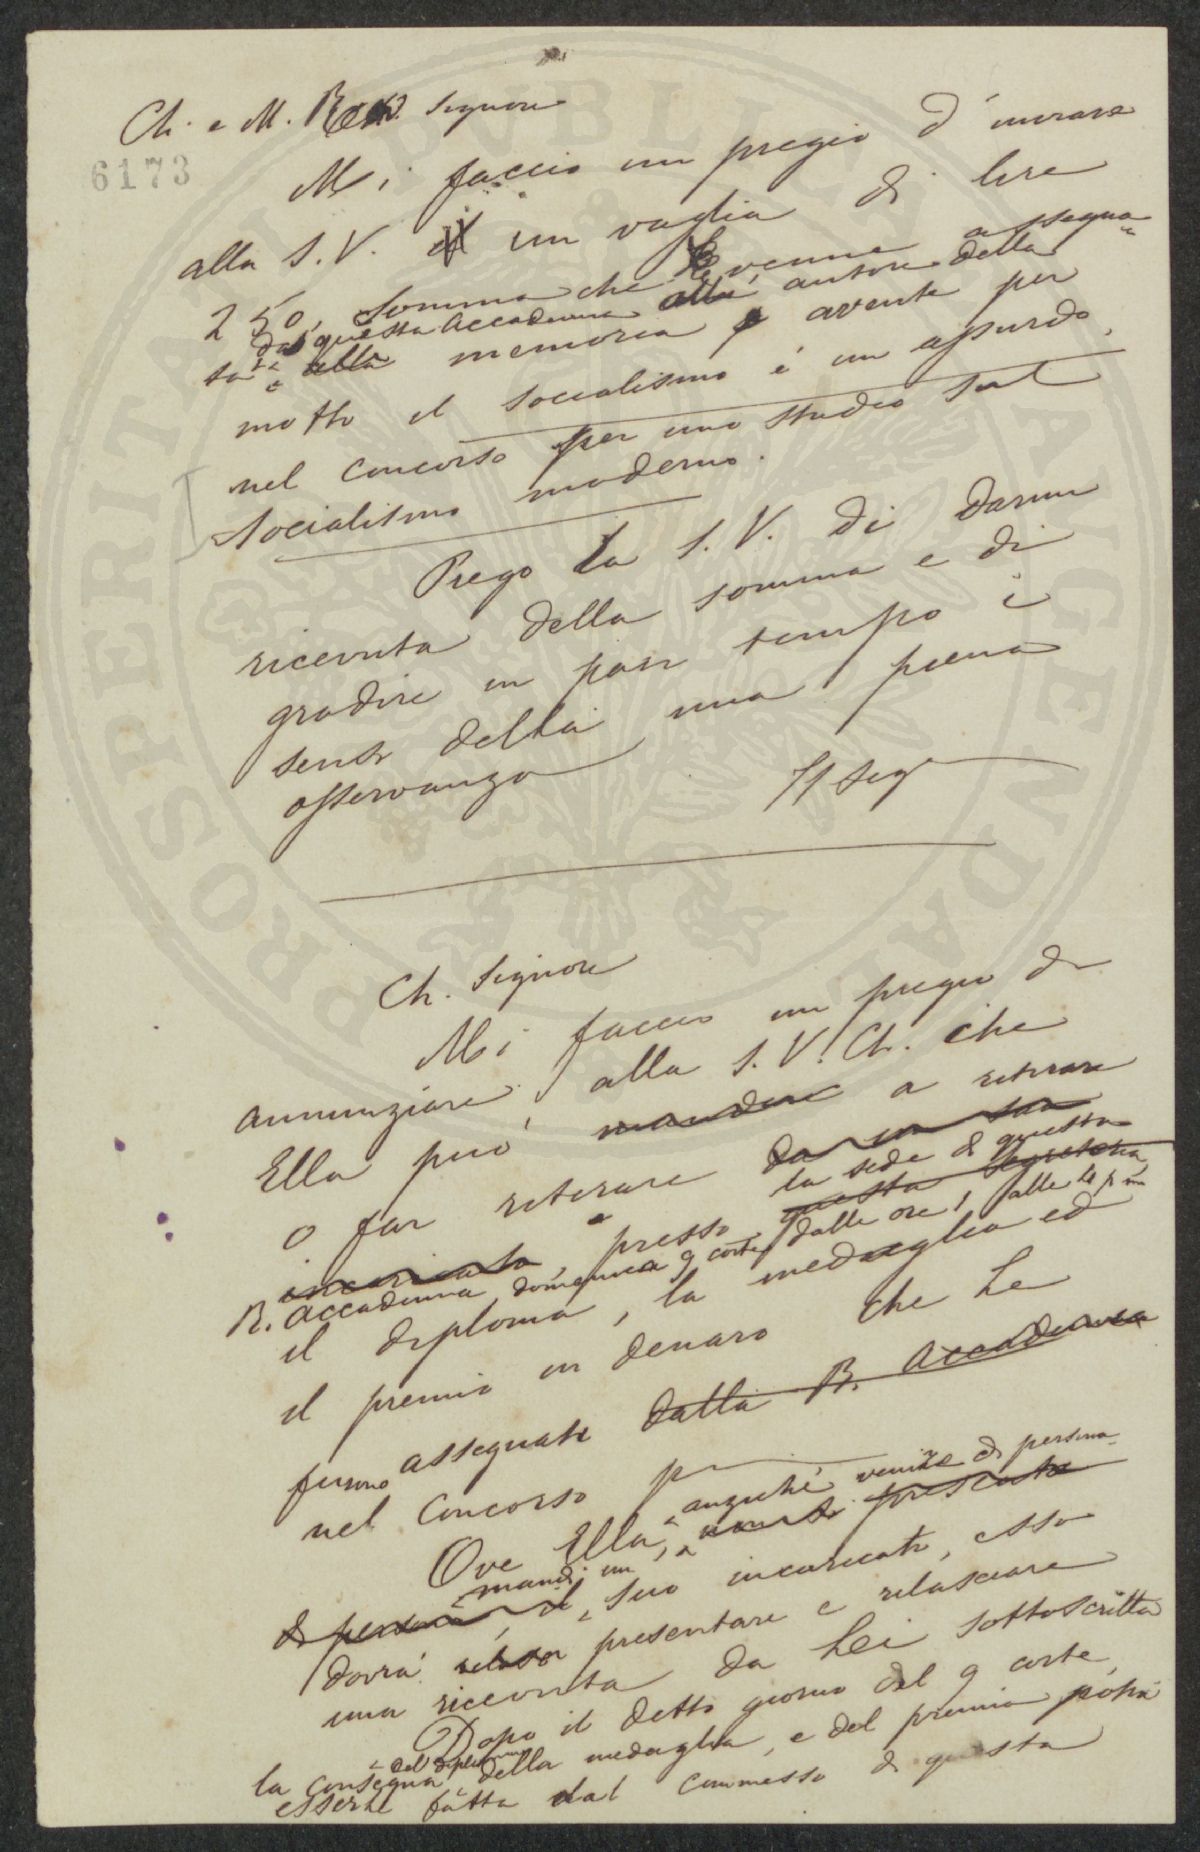 Ch. e M. Rev. Signore
6173
Mi faccio un pregio d'inviare
alla S. V. un vaglia di lire
250, somma che Le venne assegna-
ta da questa Accademia all' autore della
alla memoria avente per
motto il socialismo è un assurdo,
nel concorso per uno studio sul
Socialismo moderno.
Prego la S. V. di darmi
ricevuta della somma e di
gradire in pari tempo i
sensi della mia piena
osservanza
Il Seg
Ch. Signore
Mi faccio un pregio di
annunziare alla S. V. Ch. che
Ella può mandare a ritirare
o far ritirare da un suo
la sede di questa
incaricato, presso questa Segreteria
R. Accademia, domenica 9 corte, dalle ore 1 alle 4 pm
il diploma, la medaglia ed
il premio in denaro che Le
furono assegnati dalla R. Accademia
nel concorso p
anzichè venire di persona
Ove Ella, non si presenta
mandi un
di persona, il suo incaricato, esso
dovrà presentare e rilasciare
una ricevuta da Lei sottoscritta
Dopo il detto giorno del 9 corte,
del diploma
la consegna della medaglia, e del premio potrà
esserle fatta dal commesso di questa
PROSPERITATI PUBLICAE AUGENDAE